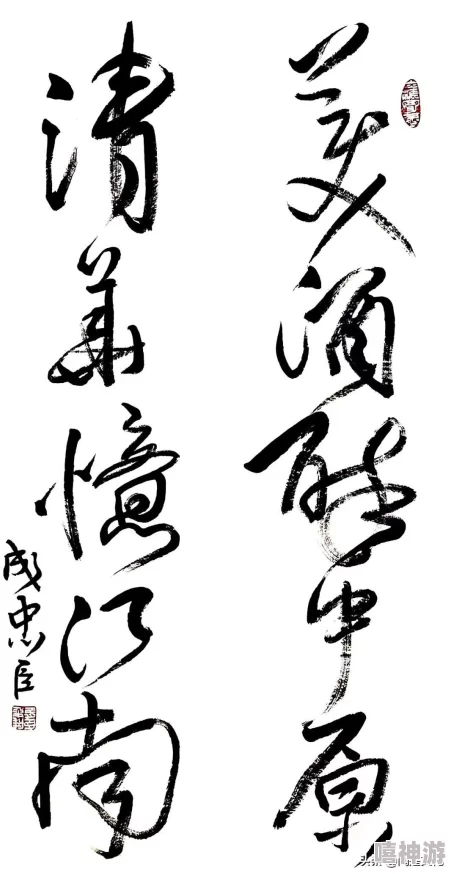 美酒醉中原
清華憶江南
成忠臣
嘻神游